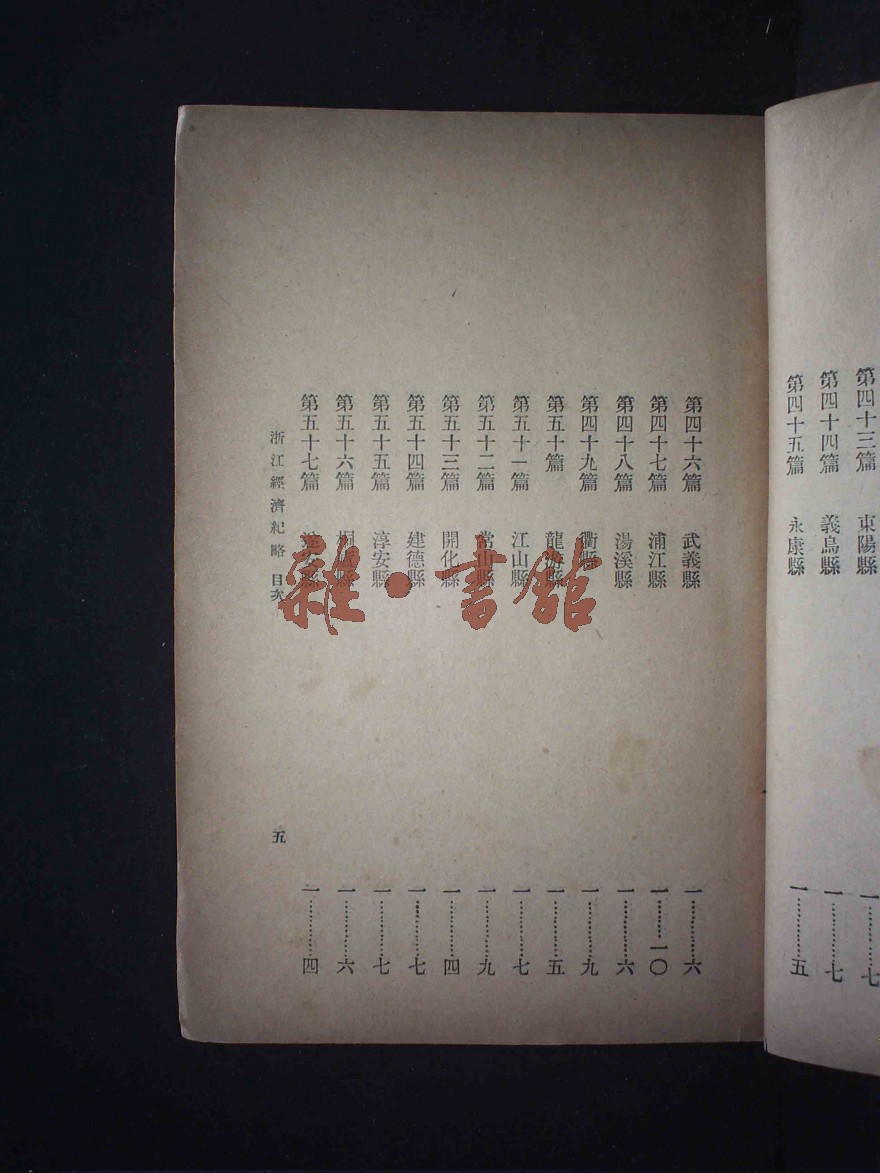 第四十三篇　東陽縣　一…………七
第四十四篇　義烏縣　一…………七
第四十五篇　永康縣　一…………五
第四十六篇　武義縣　一…………六
第四十七篇　浦江縣　一…………一〇
第四十八篇　湯溪縣　一…………六
第四十九篇　衢縣　一…………九
第五十篇　龍游縣　一…………五
第五十一篇　江山縣　一…………七
第五十二篇　常山縣　一…………九
第五十三篇　開化縣　一…………四
第五十四篇　建德縣　一…………七
第五十五篇　淳安縣　一…………七
第五十六篇　桐廬縣　一…………六
第五十七篇　遂安縣　一…………四
浙江經濟紀略　目次　五
雜·書館